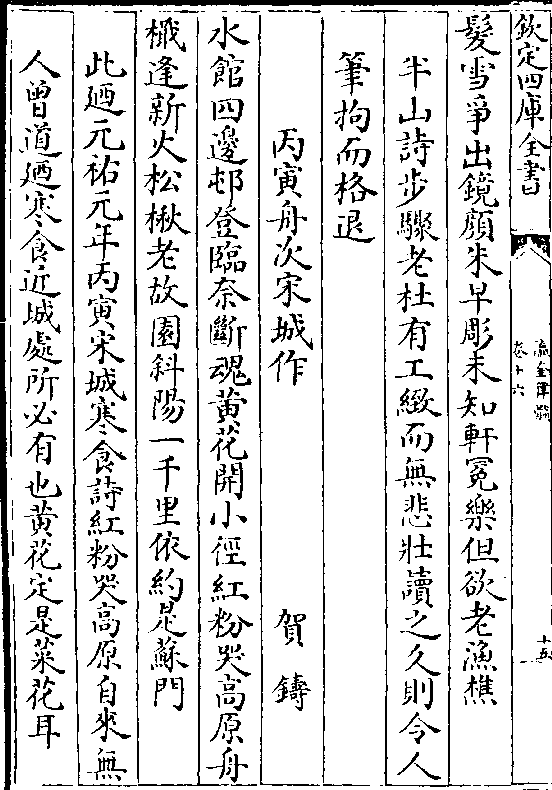 欽定四庫全書
瀛奎律髓
卷十六
十五
髮雪爭出鏡顔朱早彫未知軒冕樂但欲老漁樵
半山詩步驟老杜有工緻而無悲壯讀之久則令人
筆拘而格退
丙寅舟次宋城作　　　　賀鑄
水館四邊邨登臨奈斷魂黄花開小徑紅粉哭高原舟
檝逢新火松楸老故園斜陽一千里依約是蘇門
此廼元祐元年丙寅宋城寒食詩紅粉哭高原自來無
人曾道廼寒食近城處所必有也黄花定是菜花耳